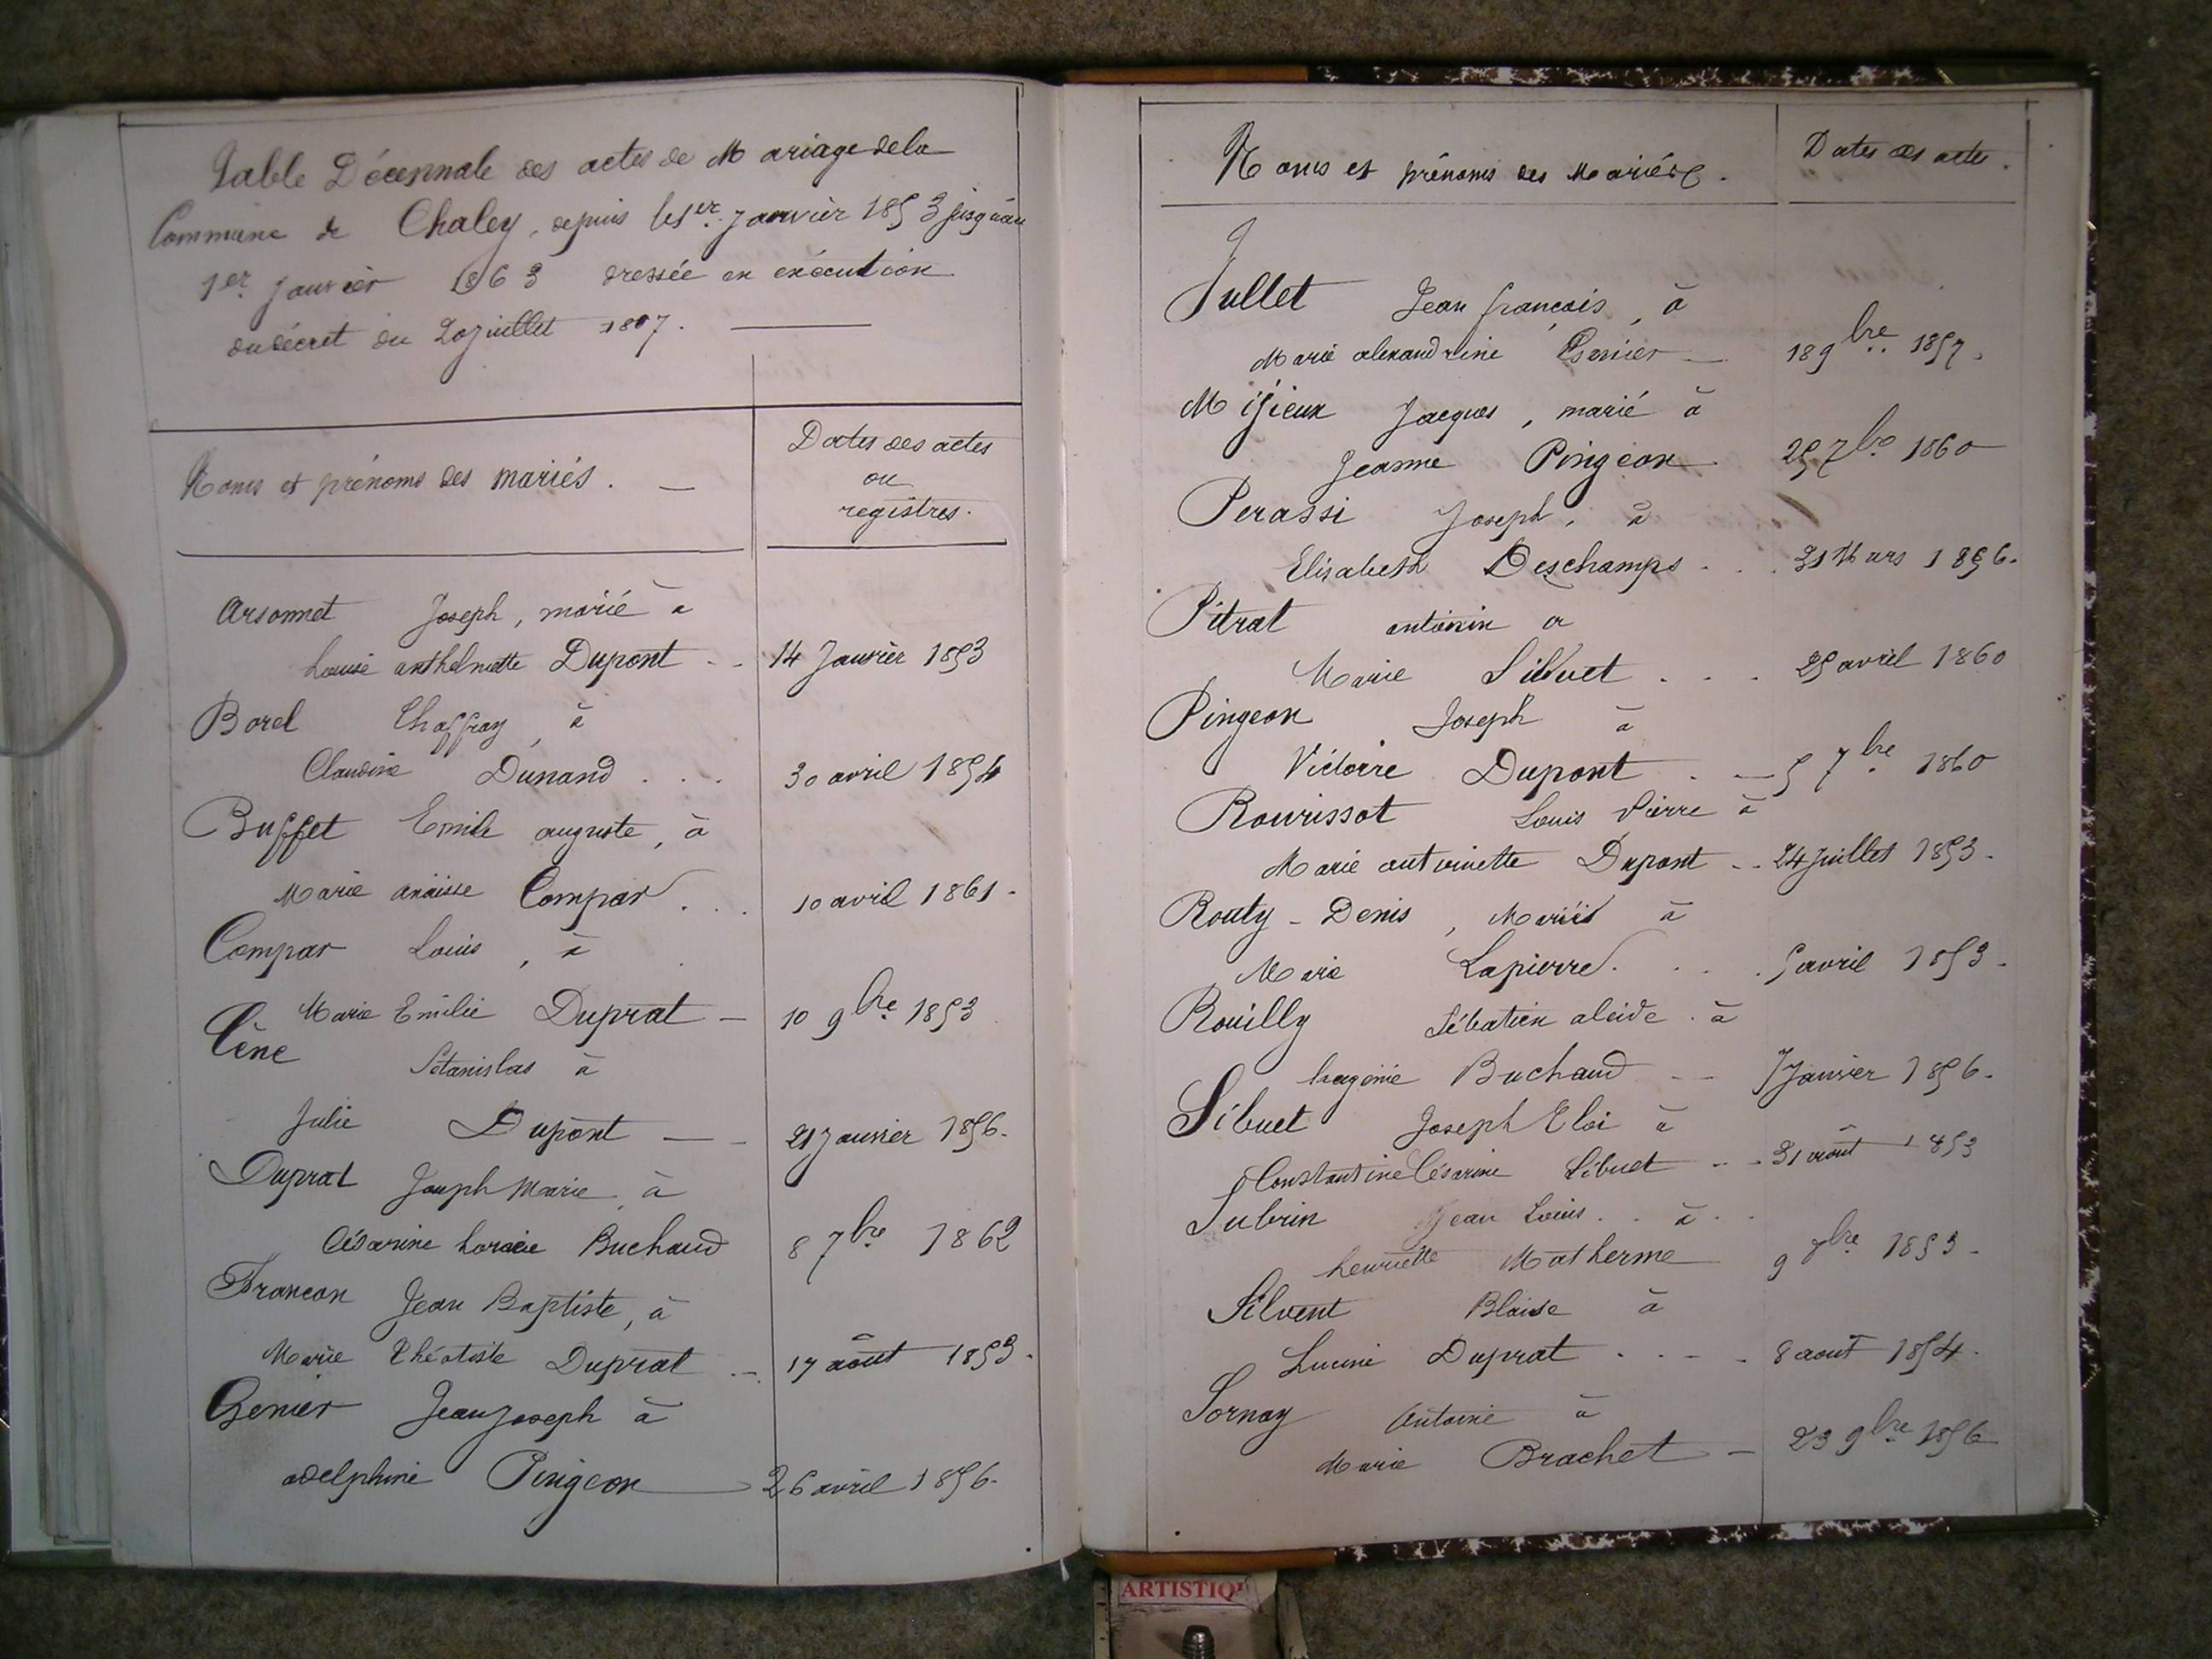 Table Décennale des actes de Mariage de la
Commune de Chaley, depuis le 1er. Janvier 1853 jusqu'au
1er Janvier 1863 dressée en exécution
du décret du 20 juillet 1807.
Noms et prénoms des mariés.
Dates des actes
ou
registres.
Arsonnet Joseph, marié à
Louise anthelmette Dupont
14 Janvier 1853
Borel Chaffray, à
Claudine Dunand . . .
30 avril 1854
Buffet Emile auguste, à
Marie anaisse Compar . . .
10 avril 1861
Compar Louis, à
Marie Emilie Duprat
10 9bre 1853
Cène Stanislas à
Julie Dupont
21 Janvier 1856.
Duprat Joseph Marie, à
Césarine Buchaud
8 7bre 1862
Francon Jean Baptiste, à
Marie Théotiste Duprat
17 août 1853.
Genier Jean Joseph à
adelphine Pingeon
26 avril 1856.
Noms et prénoms des Mariés.
Dates des actes.
Jullet Jean françois, à
Marie alexandrine Genier
18 9bre. 1857.
Mijieux Jacques, marié à
Jeanne Pingeon
25 7bre 1860
Perassi Joseph, à
Elisabeth Deschamps . . .
31 Mars 1856.
Pitrat antonin à
Marie Sibuet . . .
25 avril 1860
Pingeon Joseph à
Victoire Dupont
5 7bre 1860
Rourissot Louis Pierre à
Marie antoinette Dupont
24 Juillet 1853.
Routy - Denis, Marié à
Marie Lapierre . . .
5 avril 1853.
Rouilly Sébatien alcide. à
Buchaud
7 Janvier 1856.
Sibuet Joseph Eloi à
Constantine Césarine Sibuet
31 août 1853
Subrin Jean Louis . . à . .
henriette Matherme
9 7bre 1853.
Silvent Blaise à
Lucine Duprat
8 août 1854.
Sornay Antoine à
Marie Brachet
23 9bre 1856
ARTISTIQ